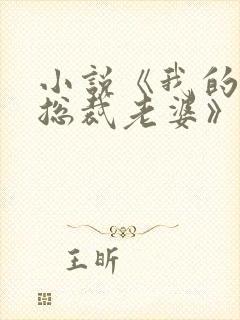 小说《我的
总裁老婆》
王昕